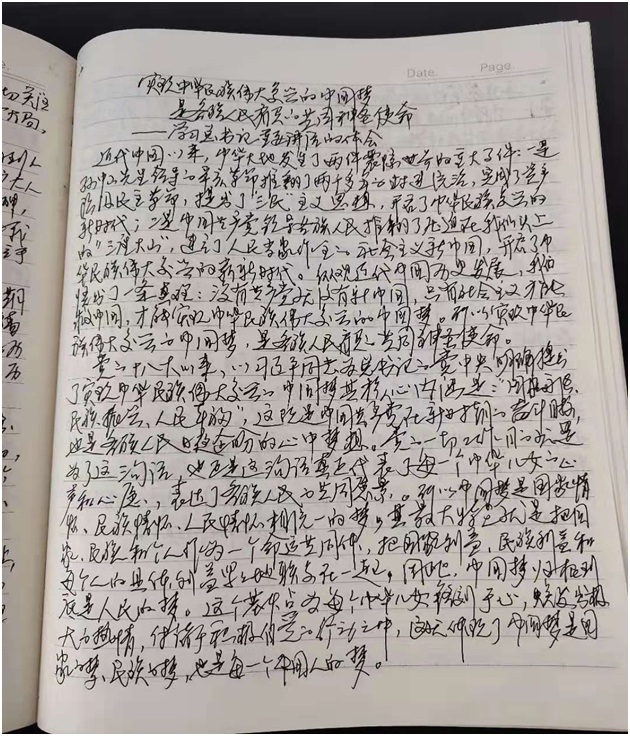 Date.
Page.
实现中华民族伟大复兴的中国梦
是各族人民肩负的共同神圣使命
——学习总书记重要讲话的体会
近代中国以来，中华大地发生了两件震惊世界的重大事件：一是
孙中山先生领导的辛亥革命推翻了两千多年的封建统治，完成了资产
阶级旧民主革命，提出了“三民”主义思想，开启了中华民族复兴的
新时代；二是中国共产党领导各族人民推翻了压迫在我们头上
的“三座大山”，建立了人民当家作主的社会主义新中国，开启了中
华民族伟大复兴的新时代。纵观近代中国历史发展，
一条真理：没有共产党就没有新中国，只有社会主义才能
救中国，才能实现中华民族伟大复兴的中国梦。所以实现中华民
族伟大复兴的中国梦，是各族人民肩负的共同神圣使命。
党的十八大以来，以习近平同志为总书记的党中央明确提出
了实现中华民族伟大复兴的中国梦其核心内涵是：“国家富强、
民族振兴、人民幸福”，这既是中国共产党在新时期的奋斗目标，
也是各族人民日益企盼的心中梦想。党的一切工作目的就是
为了这句话，也正是这句话真正代表了每一个中华儿女的心
声和心愿，表达了各族人民的共同愿景。所以中国梦是国家情
怀、民族情怀、人民情怀相统一的梦。其最大特色就是把国
家、民族和个人作为一个命运共同体，把国家利益、民族利益和
每个人的具体利益紧紧地联系在一起，因此，中国梦归根到
底是人民的梦。这个
大的热情，体现了中国梦是国
家的梦、民族的梦，也是每一个中国人的梦。